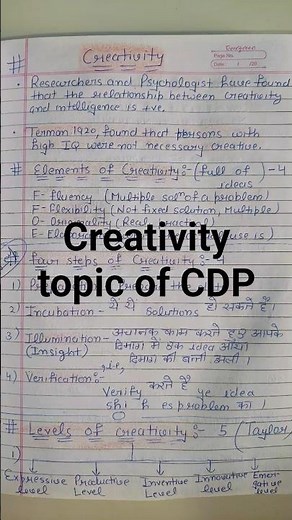 # Creativity
Page No.
Date
• Researchers and Psychologist have found
that the relationship between creativity
and intelligence is +ve.
• Terman 1920, found that persons with
high IQ were not necessary creative.
# Elements of Creativity:- (full of) - 4
ideas
F- fluency (Multiple solⁿ of a problem)
F- flexibility (Not fixed solution, Multiple)
O- Originality (Real
E-
use is)
Creativity
topic of CDP
# Four steps of Creativity:- 4
1)
2) Incubation - ये ये solutions हो सकते हैं।
3) Illumination - अचानक काम करते हुए आपके
(Insight) दिमाग में एक idea आया।
दिमाग की बत्ती जली।
4) Verification:- Verify करते हैं ye idea
problem का।
# Levels of creativity:- 5 (Taylor,
1)
Expressive level
Productive Level
Inventive Level
Innovative level
Emergative level